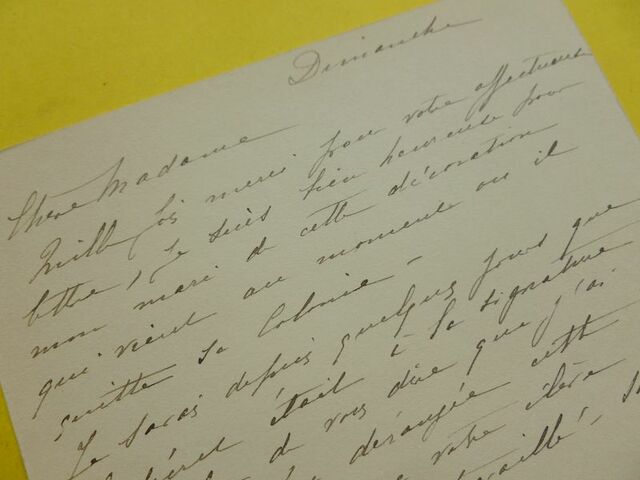 Dimanche
Chère Madame
Mille fois merci pour votre affectueuse
lettre, je suis bien heureuse pour
mon mari de cette décoration
qui vient au moment où il
quitte sa Colonie -
Je savais depuis quelques jours que
était à la signature
de vous dire que j'ai
dérangée cette
votre élève
travaillé,